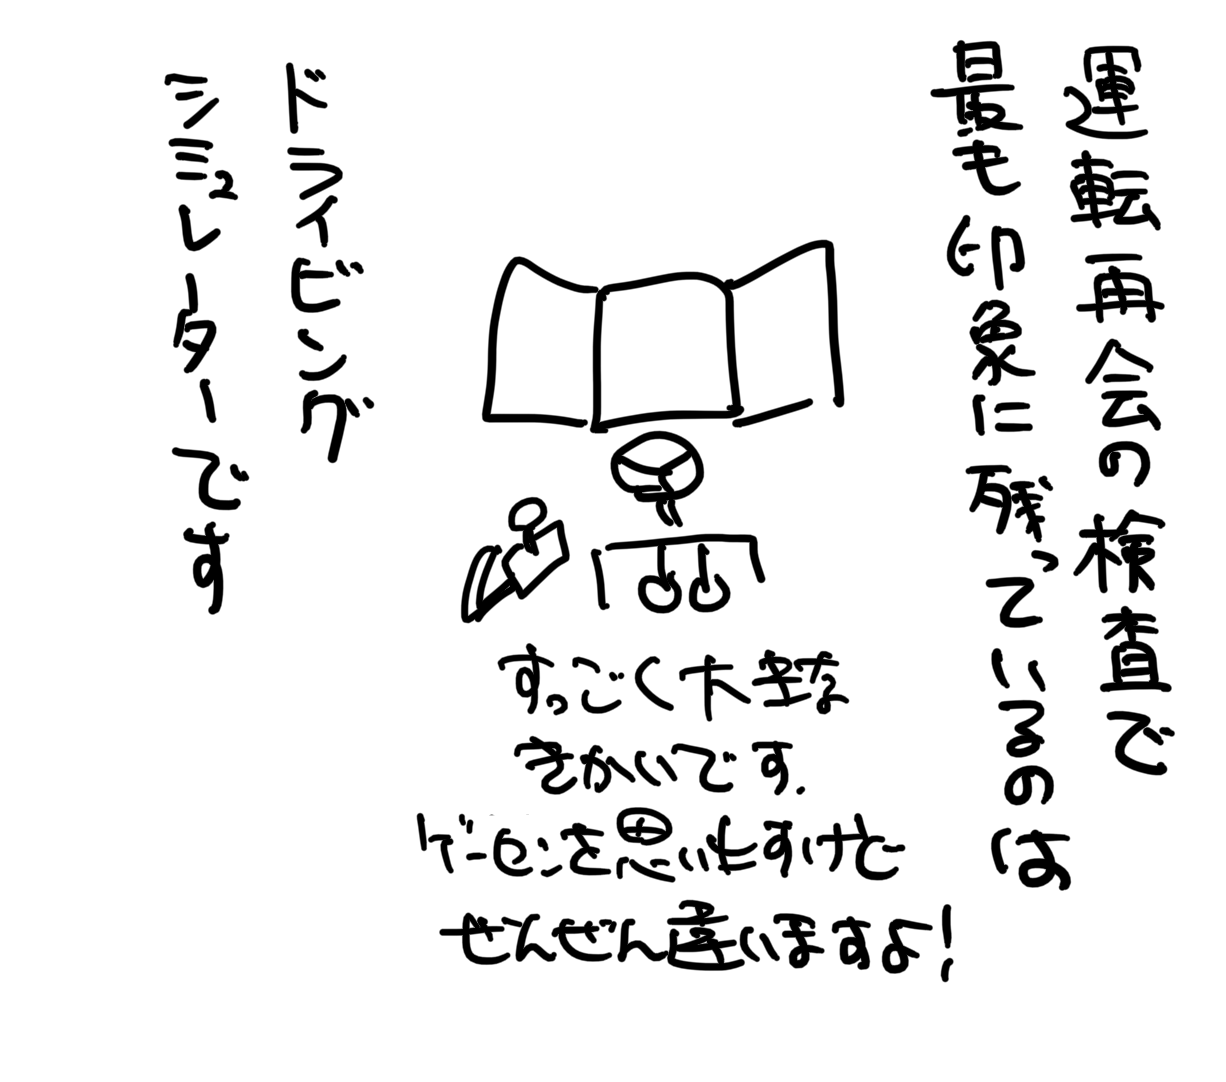 運転再会の検査で
最も印象に残っているのは
ドライビング
シミュレーターです
すっごく大堅な
きかいです.
ゲーセンを思い出すけど
ぜんぜん違いますよ!